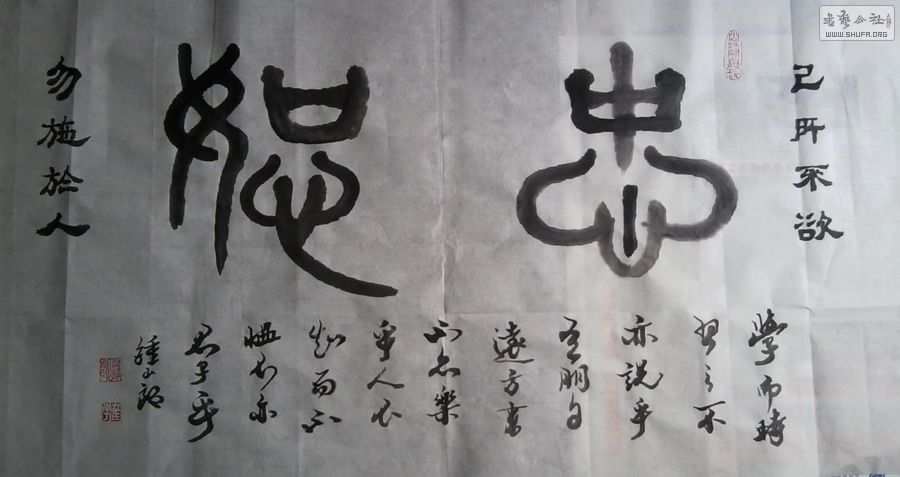 己所不欲
忠恕
勿施於人
學而時
習之不
亦說乎
有朋自
遠方來
不亦樂
乎人不
知而不
慍不亦
君子乎
書藝公社
WWW.SHUFA.ORG